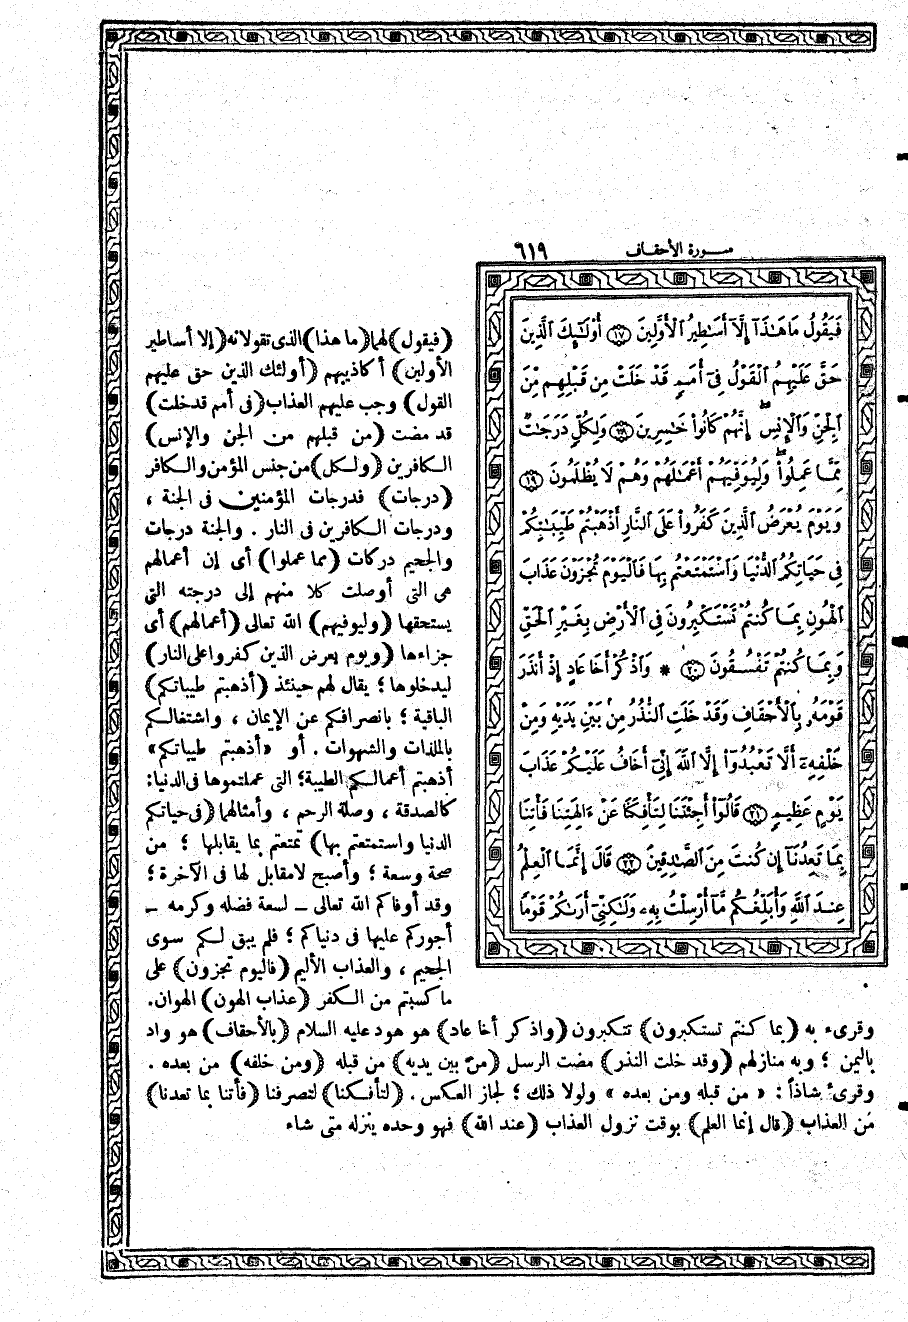 سورة الأحقاف ٦١٩
فَيَقُولُ مَا هَـٰذَآ إِلَّآ أَسَـٰطِيرُ ٱلْأَوَّلِينَ ﴿١٧﴾ أُوْلَـٰٓئِكَ ٱلَّذِينَ
حَقَّ عَلَيْهِمُ ٱلْقَوْلُ فِىٓ أُمَمٍ قَدْ خَلَتْ مِن قَبْلِهِم مِّنَ
ٱلْجِنِّ وَٱلْإِنسِ ۖ إِنَّهُمْ كَانُوا۟ خَـٰسِرِينَ ﴿١٨﴾ وَلِكُلٍّ دَرَجَـٰتٌ
مِّمَّا عَمِلُوا۟ ۖ وَلِيُوَفِّيَهُمْ أَعْمَـٰلَهُمْ وَهُمْ لَا يُظْلَمُونَ ﴿١٩﴾
وَيَوْمَ يُعْرَضُ ٱلَّذِينَ كَفَرُوا۟ عَلَى ٱلنَّارِ أَذْهَبْتُمْ طَيِّبَـٰتِكُمْ
فِى حَيَاتِكُمُ ٱلدُّنْيَا وَٱسْتَمْتَعْتُم بِهَا فَٱلْيَوْمَ تُجْزَوْنَ عَذَابَ
ٱلْهُونِ بِمَا كُنتُمْ تَسْتَكْبِرُونَ فِى ٱلْأَرْضِ بِغَيْرِ ٱلْحَقِّ
وَبِمَا كُنتُمْ تَفْسُقُونَ ﴿٢٠﴾ * وَٱذْكُرْ أَخَا عَادٍ إِذْ أَنذَرَ
قَوْمَهُۥ بِٱلْأَحْقَافِ وَقَدْ خَلَتِ ٱلنُّذُرُ مِنۢ بَيْنِ يَدَيْهِ وَمِنْ
خَلْفِهِۦٓ أَلَّا تَعْبُدُوٓا۟ إِلَّا ٱللَّهَ إِنِّىٓ أَخَافُ عَلَيْكُمْ عَذَابَ
يَوْمٍ عَظِيمٍ ﴿٢١﴾ قَالُوٓا۟ أَجِئْتَنَا لِتَأْفِكَنَا عَنْ ءَالِهَتِنَا فَأْتِنَا
بِمَا تَعِدُنَآ إِن كُنتَ مِنَ ٱلصَّـٰدِقِينَ ﴿٢٢﴾ قَالَ إِنَّمَا ٱلْعِلْمُ
عِندَ ٱللَّهِ وَأُبَلِّغُكُم مَّآ أُرْسِلْتُ بِهِۦ وَلَـٰكِنِّىٓ أَرَىٰكُمْ قَوْمًا
(فيقول) لهما (ما هذا) الذى تقولانه (إلا أساطير
الأولين) أكاذيبهم (أولئك الذين حق عليهم
القول) وجب عليهم العذاب (فى أمم قد خلت)
قد مضت (من قبلهم من الجن والإنس)
الكافرين (ولكل) من جنس المؤمن والكافر
(درجات) فدرجات المؤمنين فى الجنة ،
ودرجات الكافرين فى النار . والجنة درجات
والجحيم دركات (مما عملوا) أى إن أعمالهم
هى التى أوصلت كلا منهم إلى درجته التى
يستحقها (وليوفيهم) الله تعالى (أعمالهم) أى
جزاءها (ويوم يعرض الذين كفروا على النار)
ليدخلوها ؛ يقال لهم حينئذ (أذهبتم طيباتكم)
الباقية ؛ بانصرافكم عن الإيمان ، واشتغالكم
بالملذات والشهوات . أو «أذهبتم طيباتكم»
أذهبتم أعمالكم الطيبة؛ التى عملتموها فى الدنيا:
كالصدقة ، وصلة الرحم ، وأمثالها (فى حياتكم
الدنيا واستمتعتم بها) تمتعتم بما يقابلها ؛ من
صحة وسعة ؛ وأصبح لا مقابل لها فى الآخرة ؛
وقد أوفاكم الله تعالى ــ لسعة فضله وكرمه ــ
أجوركم عليها فى دنياكم ؛ فلم يبق لكم سوى
الجحيم ، والعذاب الأليم (فاليوم تجزون) على
ما كسبتم من الكفر (عذاب الهون) الهوان.
وقرىء به (بما كنتم تستكبرون) تتكبرون (واذكر أخا عاد) هو هود عليه السلام (بالأحقاف) هو واد
باليمن ؛ وبه منازلهم (وقد خلت النذر) مضت الرسل (من بين يديه) من قبله (ومن خلفه) من بعده .
وقرىء شاذاً : « من قبله ومن بعده » ولولا ذلك ؛ لجاز العكس . (لتأفكنا) لتصرفنا (فأتنا بما تعدنا)
من العذاب (قال إنما العلم) بوقت نزول العذاب (عند الله) فهو وحده ينزله متى شاء